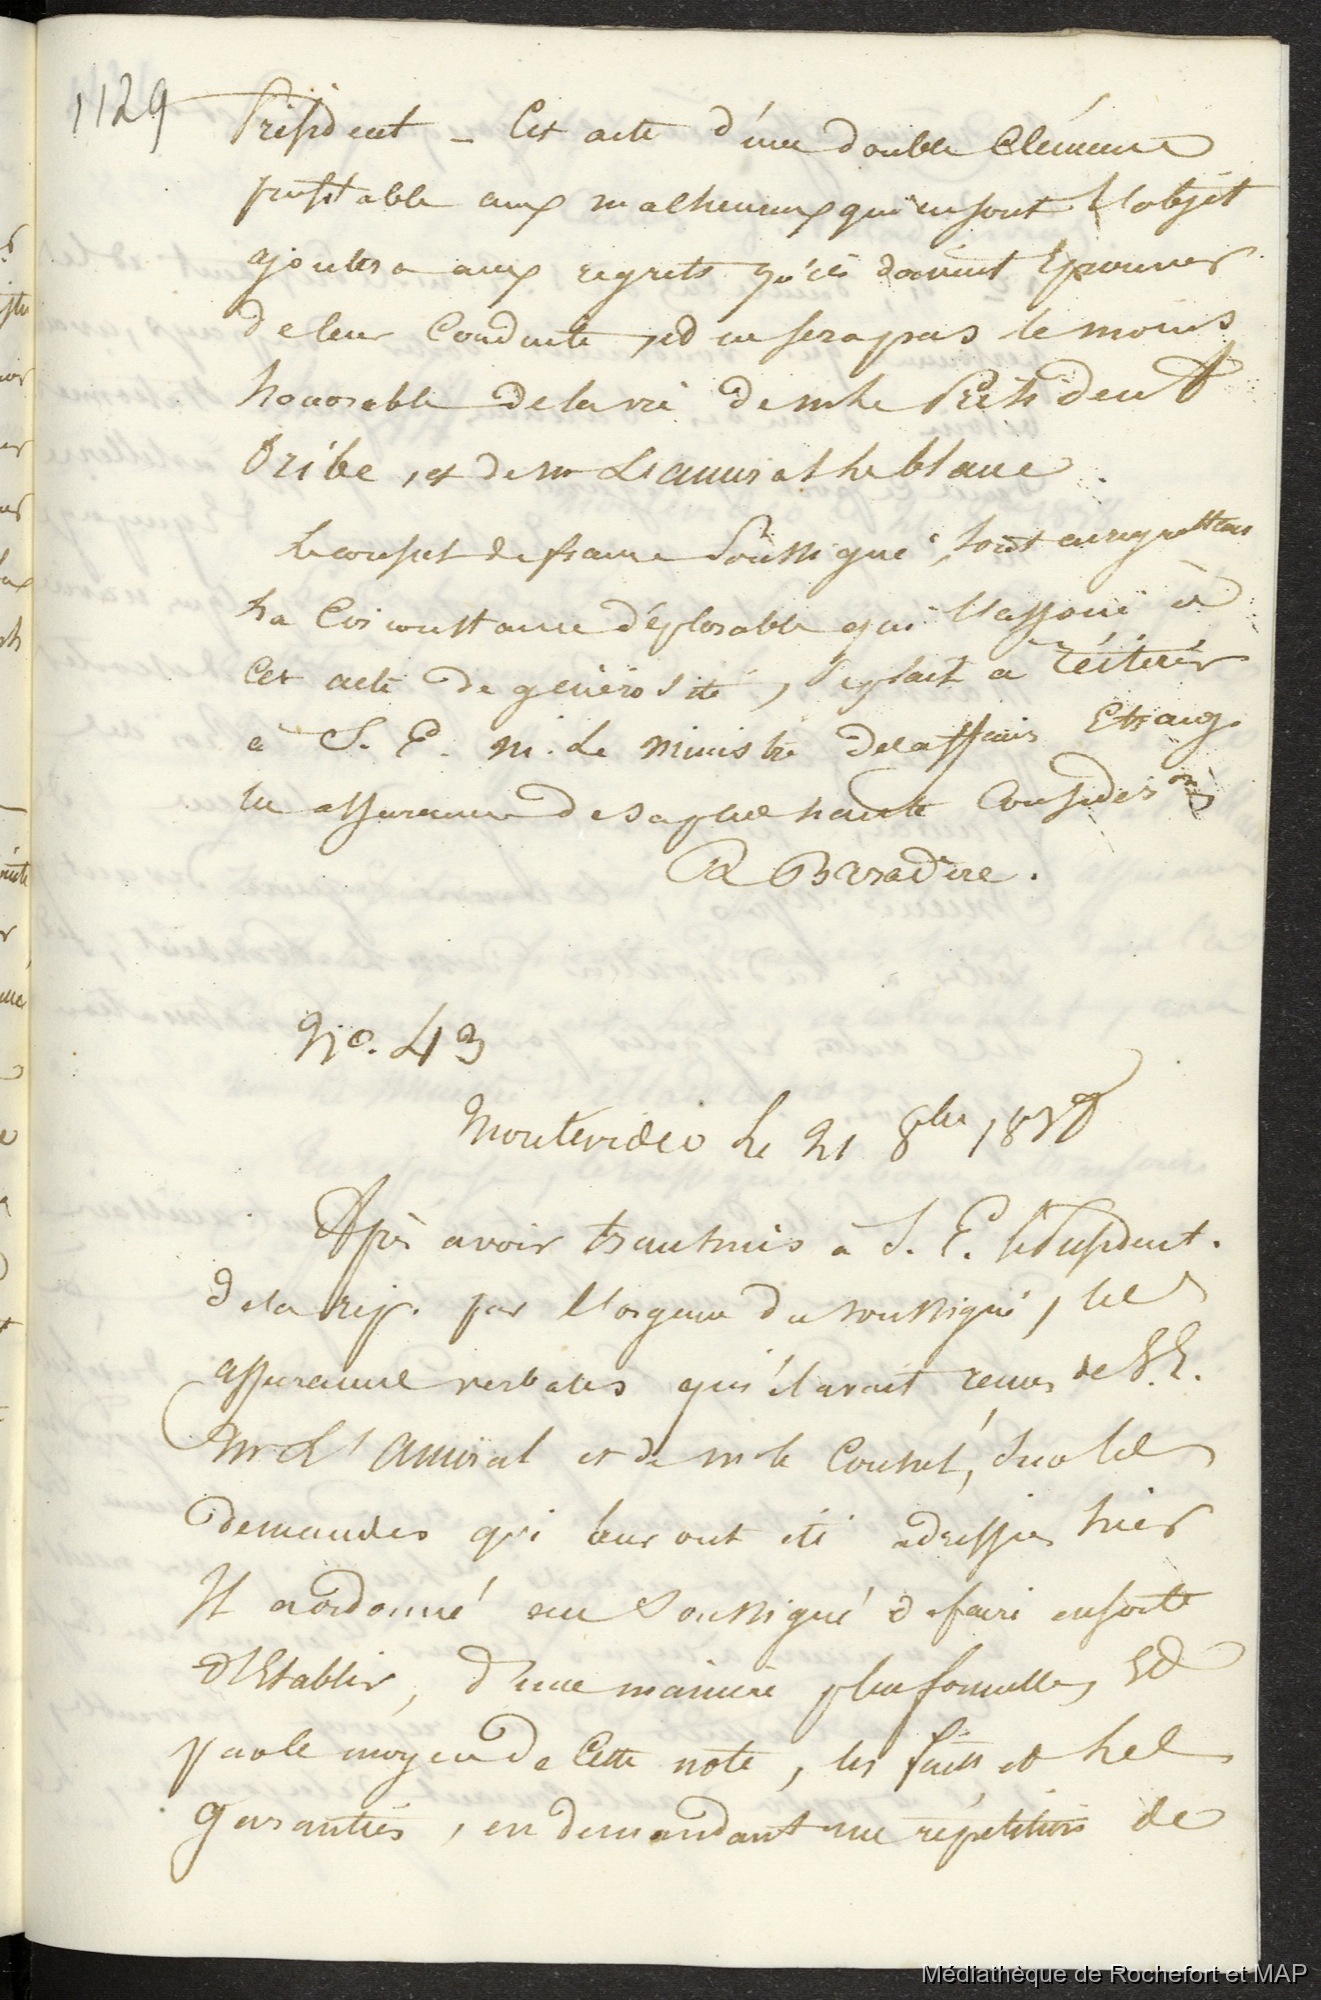 1129
Président _ Cet acte d'une double Clémence
profitable aux malheureux qui en sont l'objet
ajoutera aux regrets qu'ils doivent Eprouver
de leur Conduite, et ne sera pas le moins
honorable de la vie de mr le Président
Oribe, et de mr L'amiral Leblanc.
Le consul de france Soussigné, tout en regrettant
La Circonstance déplorable qui l'associe à
Cet acte de générosité, se plait à réitérer
à S. E. m. Le Ministre des affaires Etrang.
les assurances de sa plus haute Considéron
R Baradère.
No. 43
Montevideo Le 21 8bre 1838
Après avoir transmis à S. E. le President.
de la rép. par l'organe du soussigné, les
assurances verbales qu'il avait reçues de S.E.
Mr L'Amiral et de mr le Consul, sur les
demandes qui leur ont été adressées hier
Il a ordonné au Soussigné de faire ensorte
d'Etablir, d'une manière plus formelle, et
par le moyen de Cette note, les faits et les
garanties, en demandant une répétition de
Médiathèque de Rochefort et MAP